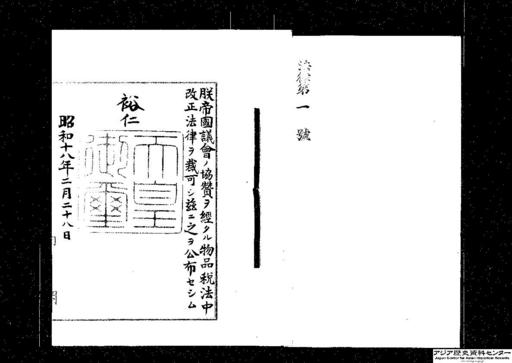 法律第一號
朕帝國議會ノ協贊ヲ經タル物品税法中
改正法律ヲ裁可シ茲ニ之ヲ公布セシム
裕仁
天皇
御璽
昭和十八年二月二十八日
アジア歴史資料センター
Japan Center for Asian Historical Records